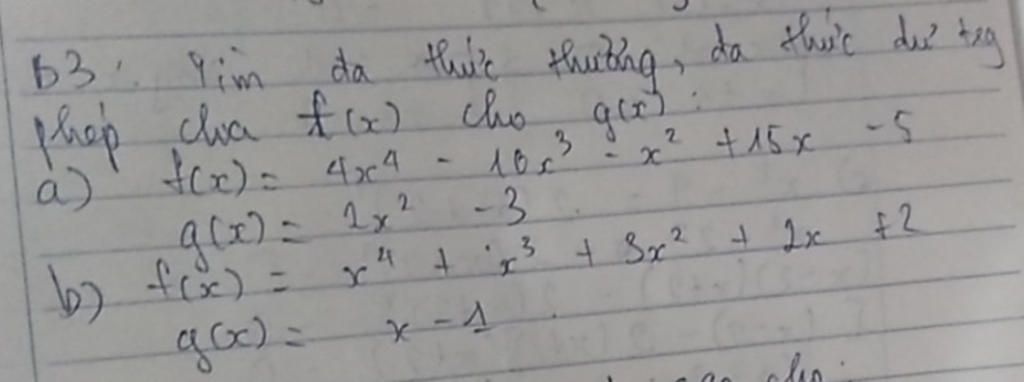 b3: Tìm đa thức thương, đa thức dư trg
phép chia f(x) cho g(x):
a) f(x) = 4x⁴ - 10x³ - x² + 15x - 5
g(x) = 2x² - 3
b) f(x) = x⁴ + x³ + 3x² + 2x + 2
g(x) = x - 1